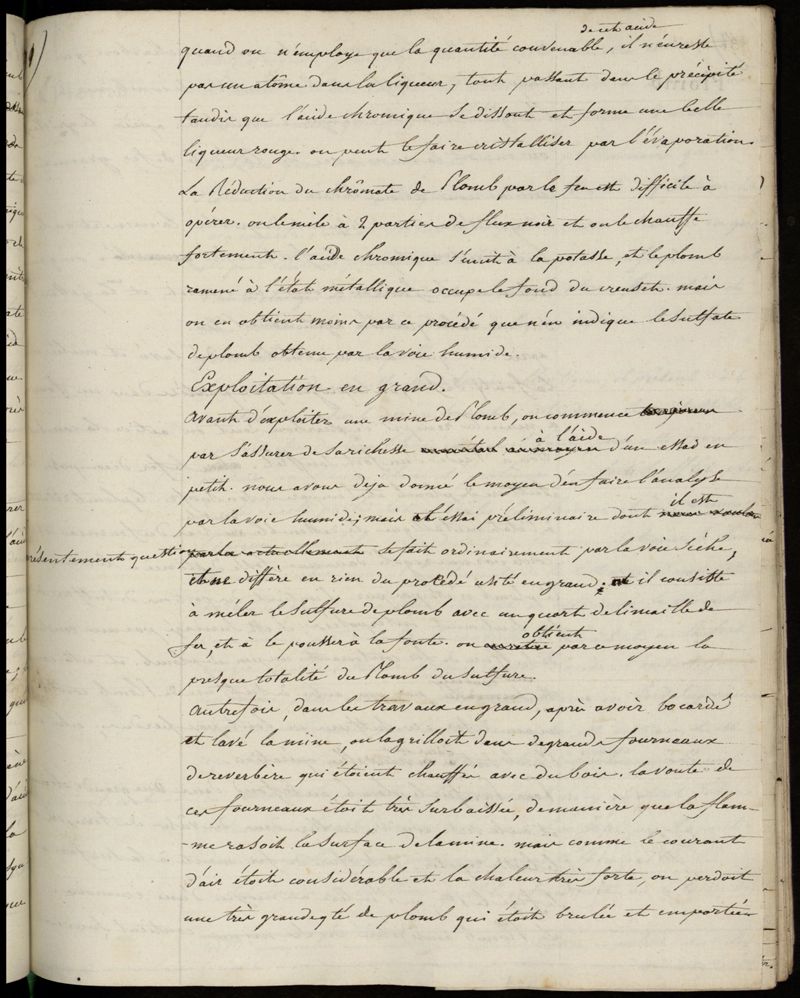 de cet acide
quand on n'employe que la quantité convenable, il n'en reste
pas un atôme dans la liqueur, tout passant dans le précipité
tandis que l'acide chromique se dissout et forme une belle
liqueur rouge. on peut le faire cristalliser par l'évaporation.
La Réduction du chrômate de Plomb par le feu est difficile à
opérer. on le mêle à 2 parties de flux noir et on le chauffe
fortement. l'acide chromique s'unit à la potasse, et le plomb
ramené à l'état métallique occupe le fond du creuset. mais
on en obtient moins par ce procédé que n'en indique le sulfate
de plomb obtenu par la voie humide.
Exploitation en grand.
avant d'exploiter une mine de Plomb, on commence
à l'aide
par s'assurer de sa richesse d'un essai en
petit. nous avons deja donné le moyen d'en faire l'analyse
il est
par la voie humide; mais l'essai préliminaire dont
présentement question se fait ordinairement par la voie sèche,
et ne diffère en rien du procédé usité en grand. il consiste
à mêler le sulfure de plomb avec un quart de limaille de
obtient
fer, et à le pousser à la fonte. on par ce moyen la
presque totalité du Plomb du sulfure.
autrefois, dans les travaux en grand, après avoir bocardé
et lavé la mine, on la grilloit dans de grands fourneaux
de reverbère qui étoient chauffés avec du bois. la voute de
ces fourneaux étoit très surbaissée, de manière que la flam-
-me rasoit la surface de la mine. mais comme le courant
d'air étoit considérable et la chaleur très forte, on perdoit
une très grande qté de plomb qui étoit brulée et emportée